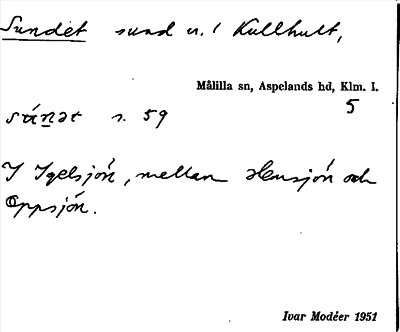 Sundet sund n. i Kullhult,
Målilla sn, Aspelands hd, Klm. l.
5
súnət s. 59
I Igelsjön, mellan Hensjön och
Oppsjön.
Ivar Modéer 1951